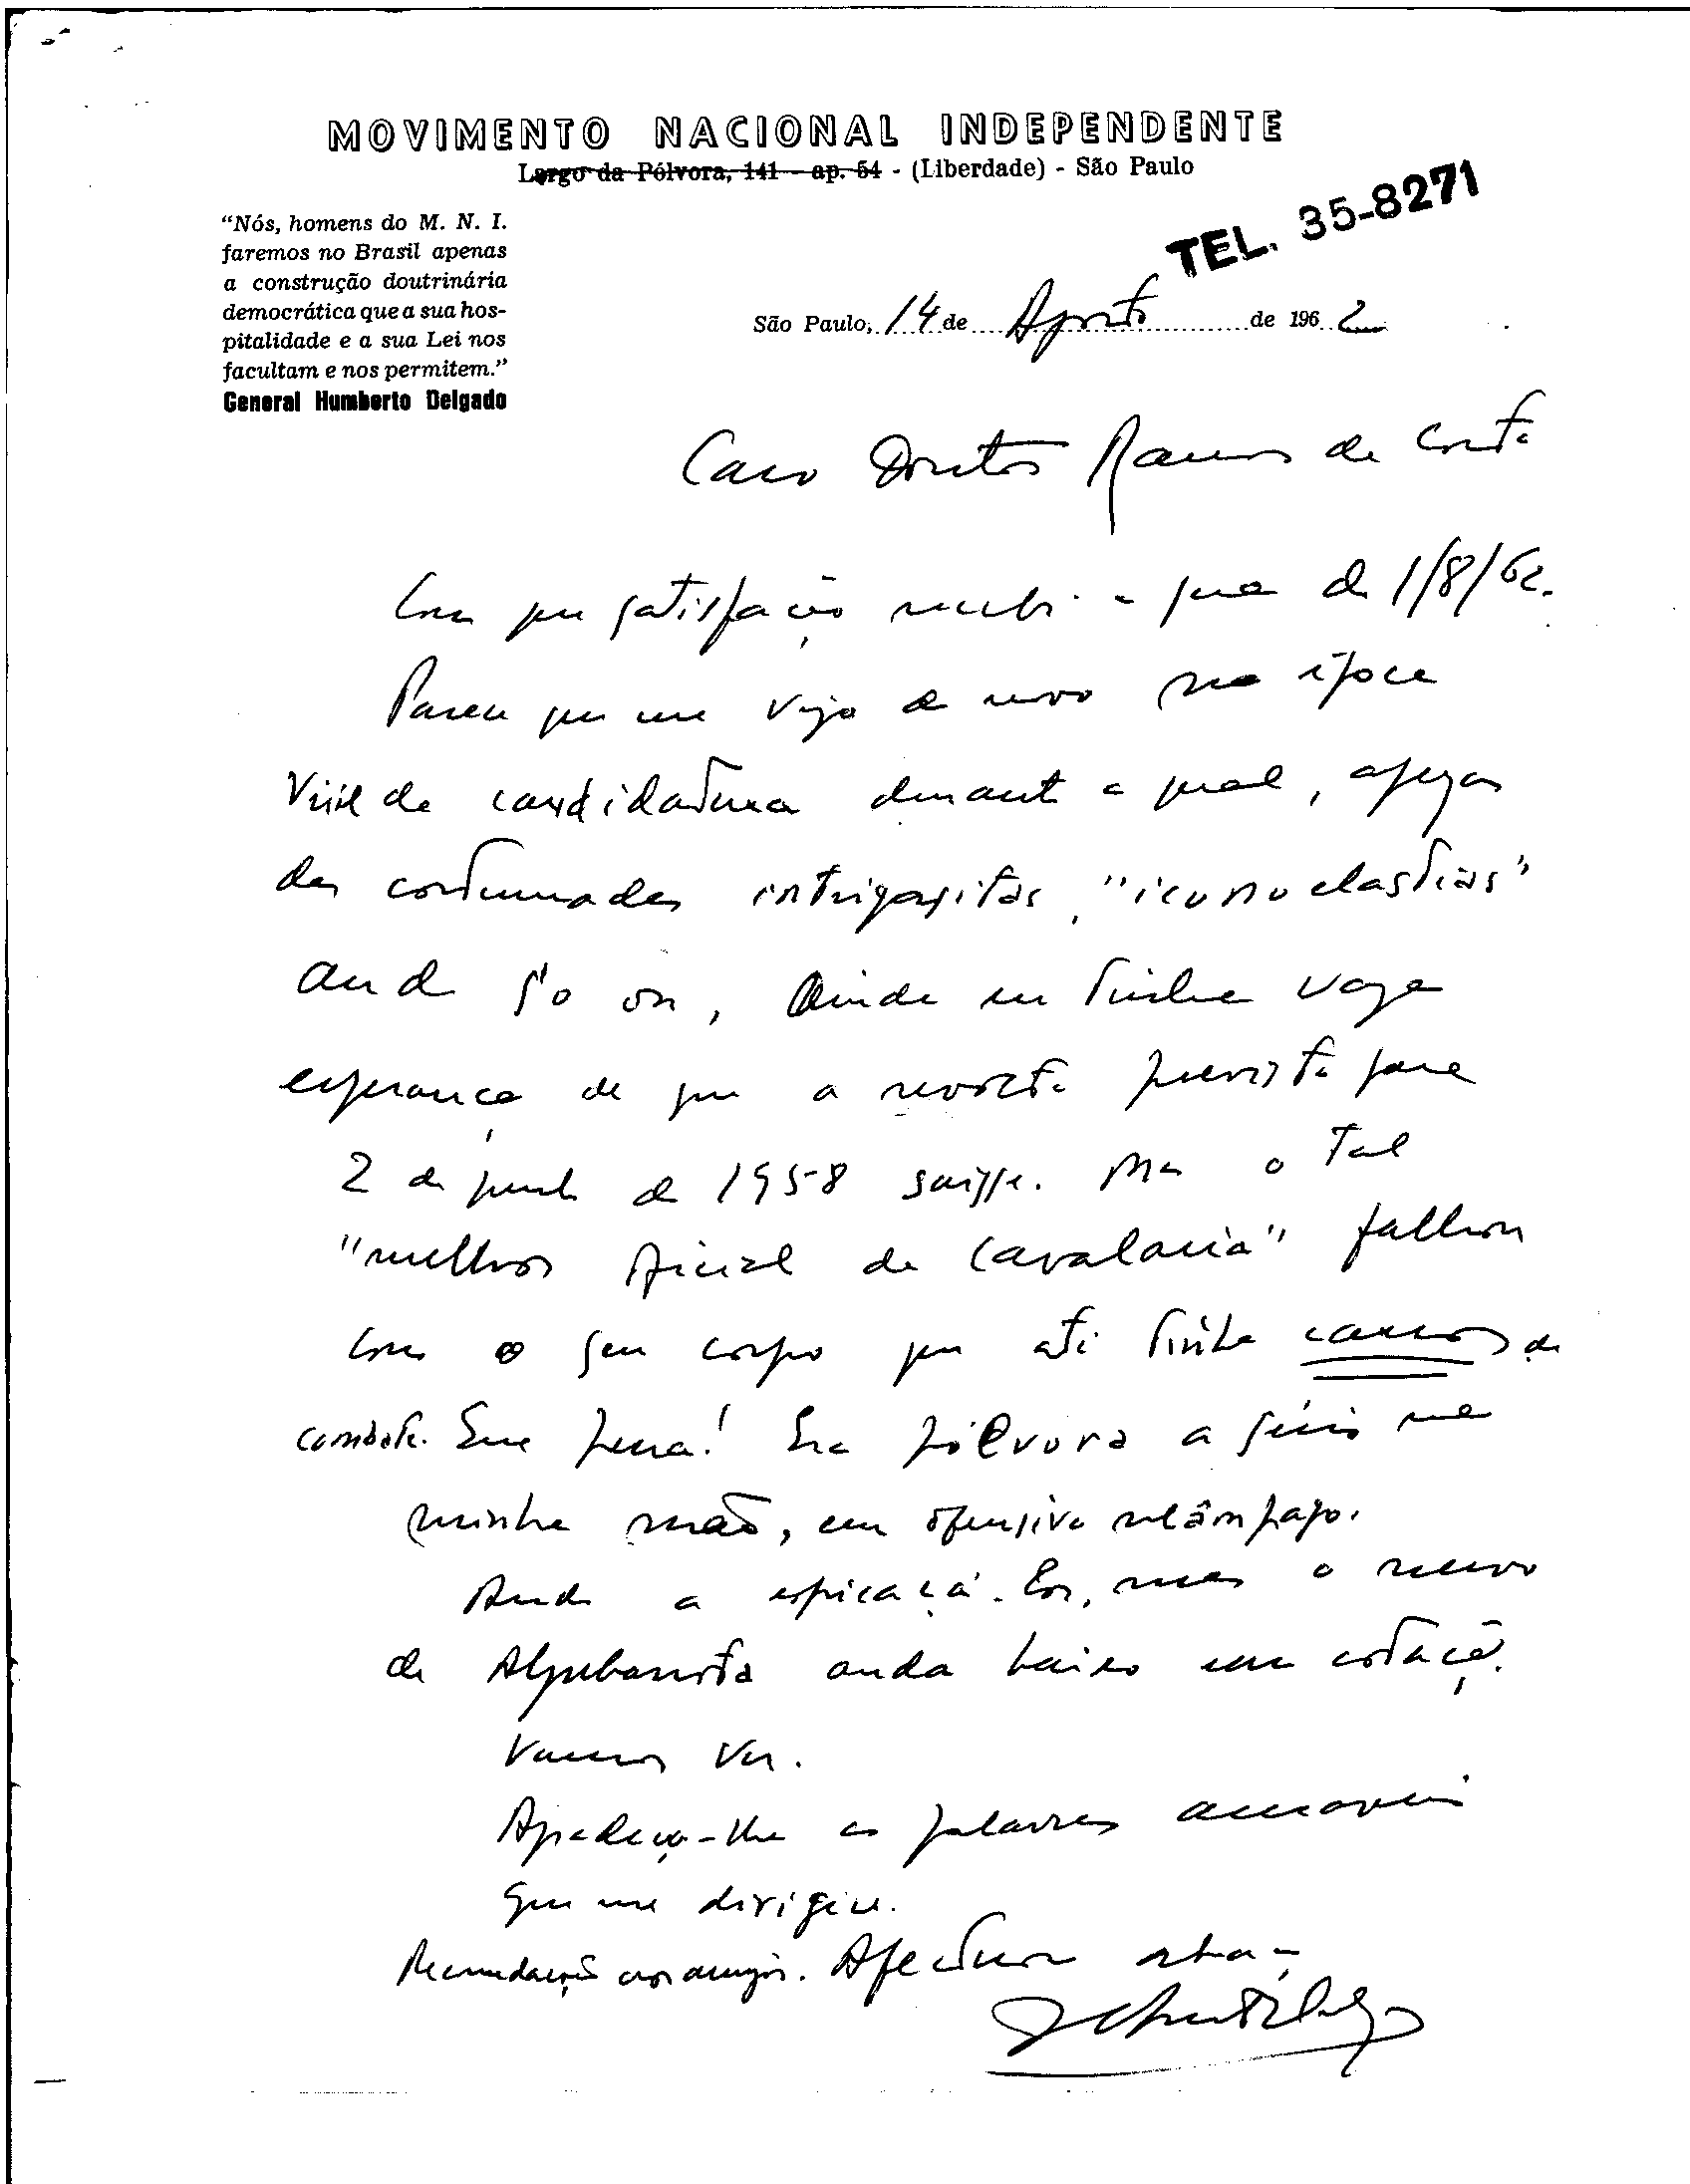 MOVIMENTO NACIONAL INDEPENDENTE
Largo da Pólvora, 141 - ap. 54 - (Liberdade) - São Paulo
TEL. 35-8271
"Nós, homens do M. N. I.
faremos no Brasil apenas
a construção doutrinária
democrática que a sua hos-
pitalidade e a sua Lei nos
facultam e nos permitem."
General Humberto Delgado
São Paulo, 14 de Agosto de 1962
Caro Doutor Ramos da Costa
Com satisfação recebi a sua de 1/8/62.
Parece que me vejo de novo na época
Viril da candidatura durante a qual, apezar
das costumadas intrigasitas, "iconoclastias"
and so on, ainda eu tinha vaga
esperança de que a revolta prevista para
2 de junho de 1958 saisse. Mas o tal
"melhor oficial de Cavalaria" falhou
com o seu corpo que até tinha carros de
combate. Que pena! Era pólvora a sério na
minha mão, em ofensiva relâmpago.
Ando a espicaçá-los, mas o nervo
de Aljubarrota anda baixo em cotação.
Vamos ver.
Agradeço-lhe as palavras amáveis
que me dirigiu.
Recomendações aos amigos. Afectuoso